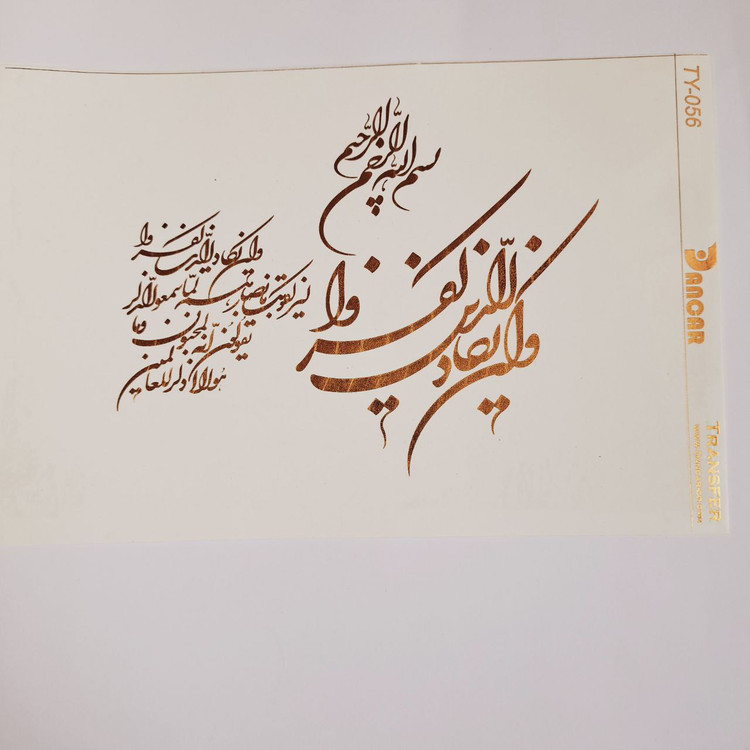 بسم الله الرحمن الرحیم
وان یکاد الذین کفروا
وان یکاد الذین کفروا
لیزلقونک بابصارهم لما سمعوا الذکر
و یقولون انه لمجنون و ما
هو الا ذکر للعالمین
TY-056
DANCAR
TRANSFER